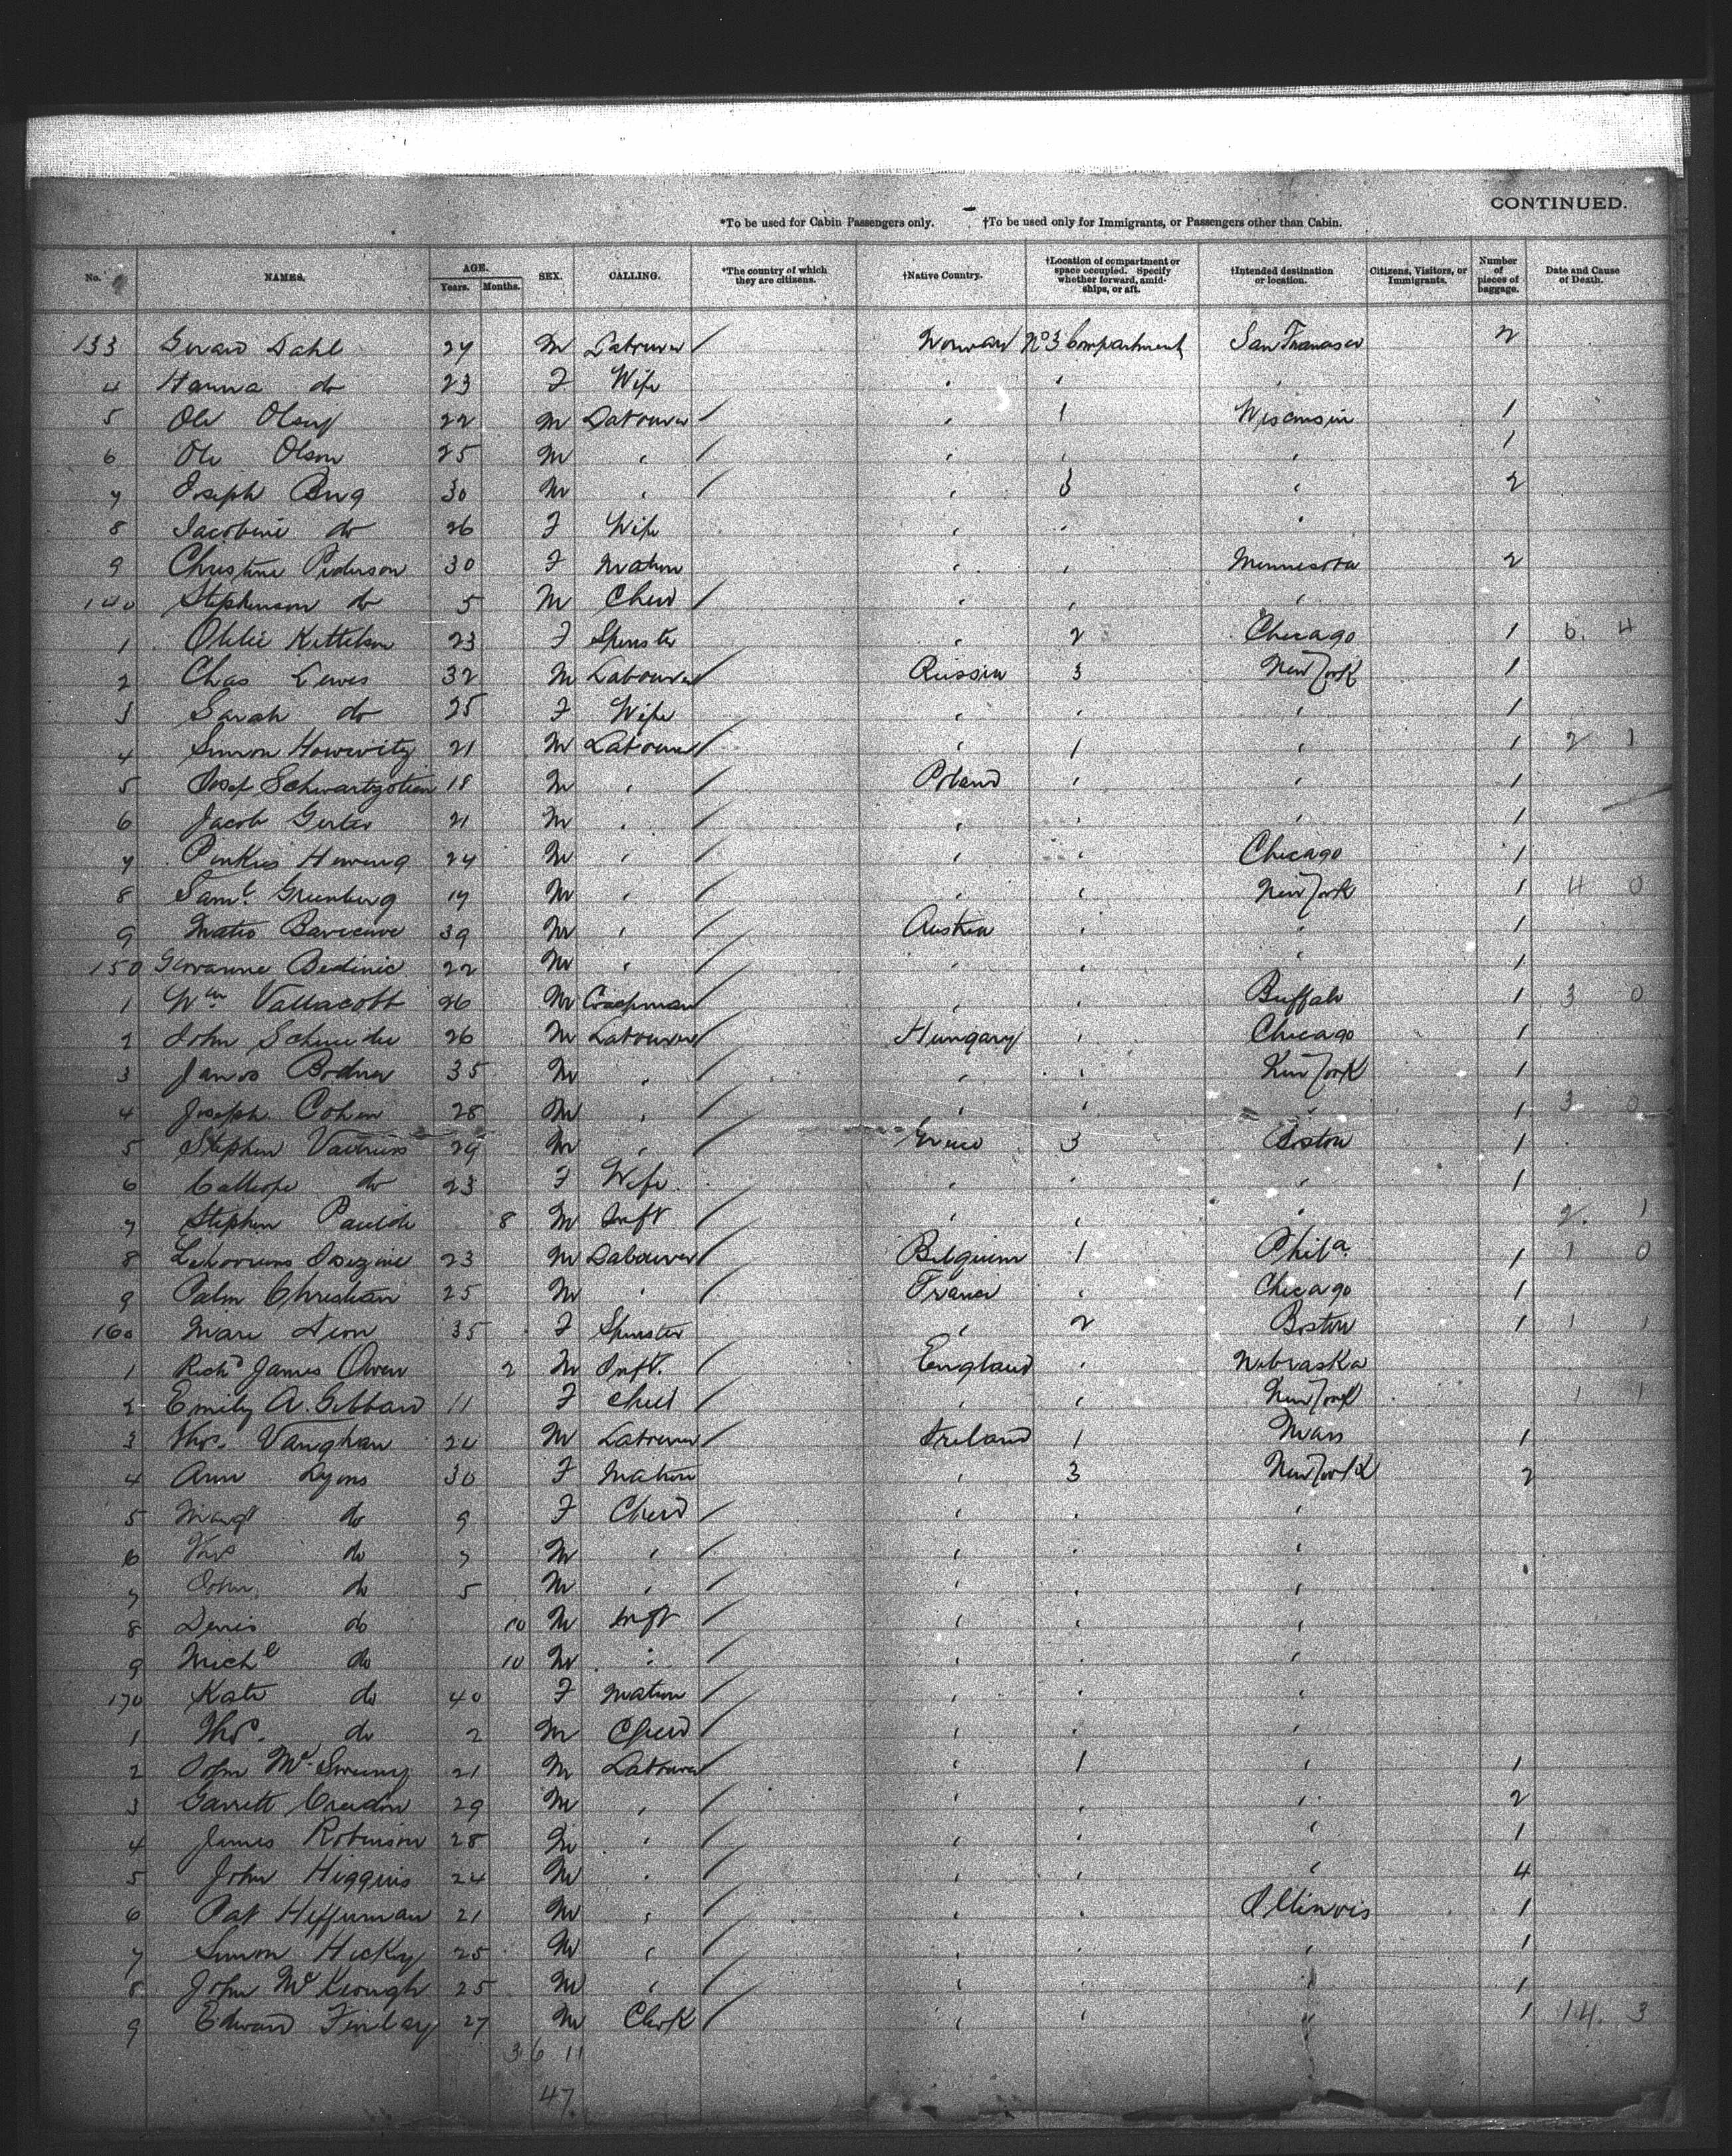 CONTINUED.
*To be used for Cabin Passengers only. †To be used only for Immigrants, or Passengers other than Cabin.
No. NAMES. AGE. Years. Months. SEX. CALLING. *The country of which they are citizens. †Native Country. †Location of compartment or space occupied. Specify whether forward, amidships, or aft. †Intended destination or location. Citizens, Visitors, or Immigrants. Number of pieces of baggage. Date and Cause of Death.
133 Dahl 27 M Labourer Norway No 3 Compartment San Francisco 2
4 Hanna do 23 F Wife " " "
5 Ole 22 M Labourer " 1 Wisconsin 1
6 Ole Olson 25 M " " " " 1
7 Joseph Berg 30 M " " 3 " 2
8 Jacobine do 26 F Wife " " "
9 Christine Pederson 30 F Matron " " Minnesota 2
140 Stephenson do 5 M Child " " "
1 Kittelson 23 F Spinster " 2 Chicago 1 6. 4
2 Chas Lewis 32 M Labourer Russia 3 New York 1
3 Sarah do 25 F Wife " " " 1
4 Simon Howivitz 21 M Labourer " 1 " 1 2 1
5 Josef 18 M " Poland " " 1
6 Jacob 21 M " " " " 1
7 24 M " " " Chicago 1
8 Saml. Greenberg 19 M " " " New York 1 4 0
9 Mateo 39 M " Austria " " 1
150 Giovanne Bedinic 22 M " " " " 1
1 Wm Vallacott 26 M Coachman " " Buffalo 1 3 0
2 John Schneider 26 M Labourer Hungary " Chicago 1
3 Janos Bodner 35 M " " " New York 1
4 Joseph Cohen 28 M " " " " 1 3 0
5 Stephen 29 M " Greece 3 Boston 1
6 Calliope do 23 F Wife " " " 1
7 Stephen 8 M Inft " " " 2. 1
8 23 M Labourer Belgium 1 Phila. 1 1 0
9 Palm Christian 25 M " France " Chicago 1
160 Marie Dion 35 F Spinster " 2 Boston 1 1 1
1 Richd James Owen 2 M Inft. England " Nebraska
2 Emily A. Gibbard 11 F Child " " New York 1 1
3 Thos. Vaughan 24 M Labourer Ireland 1 Mass 1
4 Ann Lyons 30 F Matron " 3 New York 2
5 Margt do 9 F Child " " "
6 Thos do 7 M " " " "
7 John do 5 M " " " "
8 Denis do 10 M Inft " " "
9 Michl do 10 M " " " "
170 Kate do 40 F Matron " " "
1 Thos. do 2 M Child " " "
2 John McSweeny 21 M Labourer " 1 " 1
3 Garrett Creedon 29 M " " " " 2
4 James Robinson 28 M " " " " 1
5 John Higgins 24 M " " " " 4
6 Pat Heffernan 21 M " " " Illinois 1
7 Simon Hickey 25 M " " " " 1
8 John McKeough 25 M " " " " 1
9 Edward Finlay 27 M Clerk " " " 1 14. 3
36 11
47.